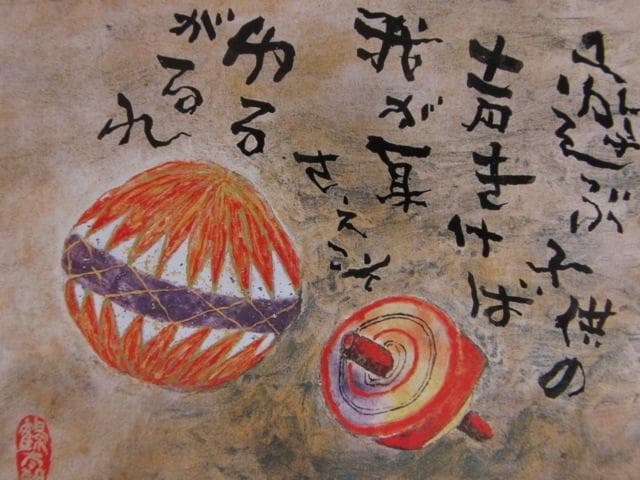 遊ぶ
子供の
声きけば
我が身
さえこそ
ゆる
がるれ